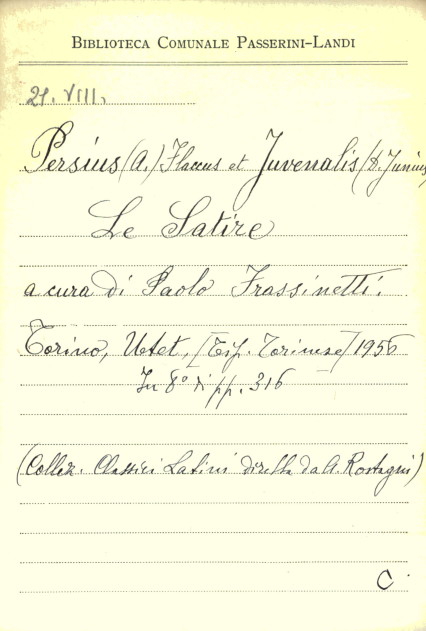 BIBLIOTECA COMUNALE PASSERINI-LANDI
21. VIII.
Persius (A.) Flaccus et Juvenalis (D. Junius
Le Satire
a cura di Paolo Frassinetti.
Torino, Utet, [Tip. Torinese] 1956
In 8° di pp. 316
(Collez. Classici Latini diretta da A. Rostagni)
C.